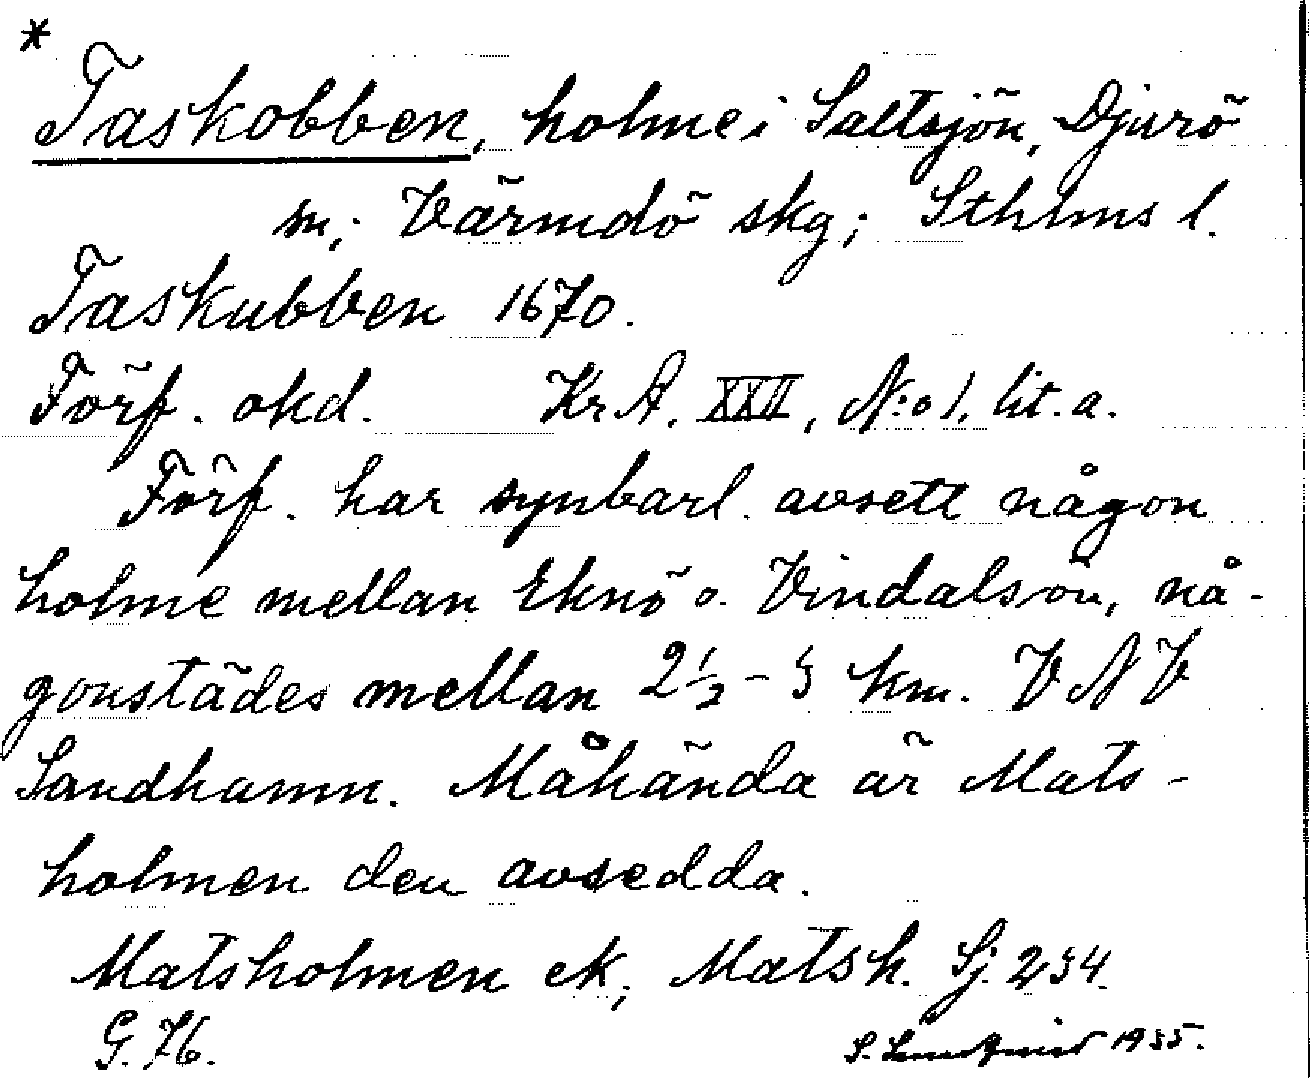 *
Taskobben, holme i Saltsjön, Djurö
sn; Värmdö skg; Sthlms l.
Taskubben 1670.
Förf. okd. KrA. XXII, N:o 1, lit. a.
Förf. har synbarl. avsett någon
holme mellan Eknö o. Vindalsön, nå-
gonstädes mellan 2½ - 3 km. VNV
Sandhamn. Måhända är Mats-
holmen den avsedda.
Matsholmen ek; Matsh. Sj. 234.
G. 76.
S. 1935.